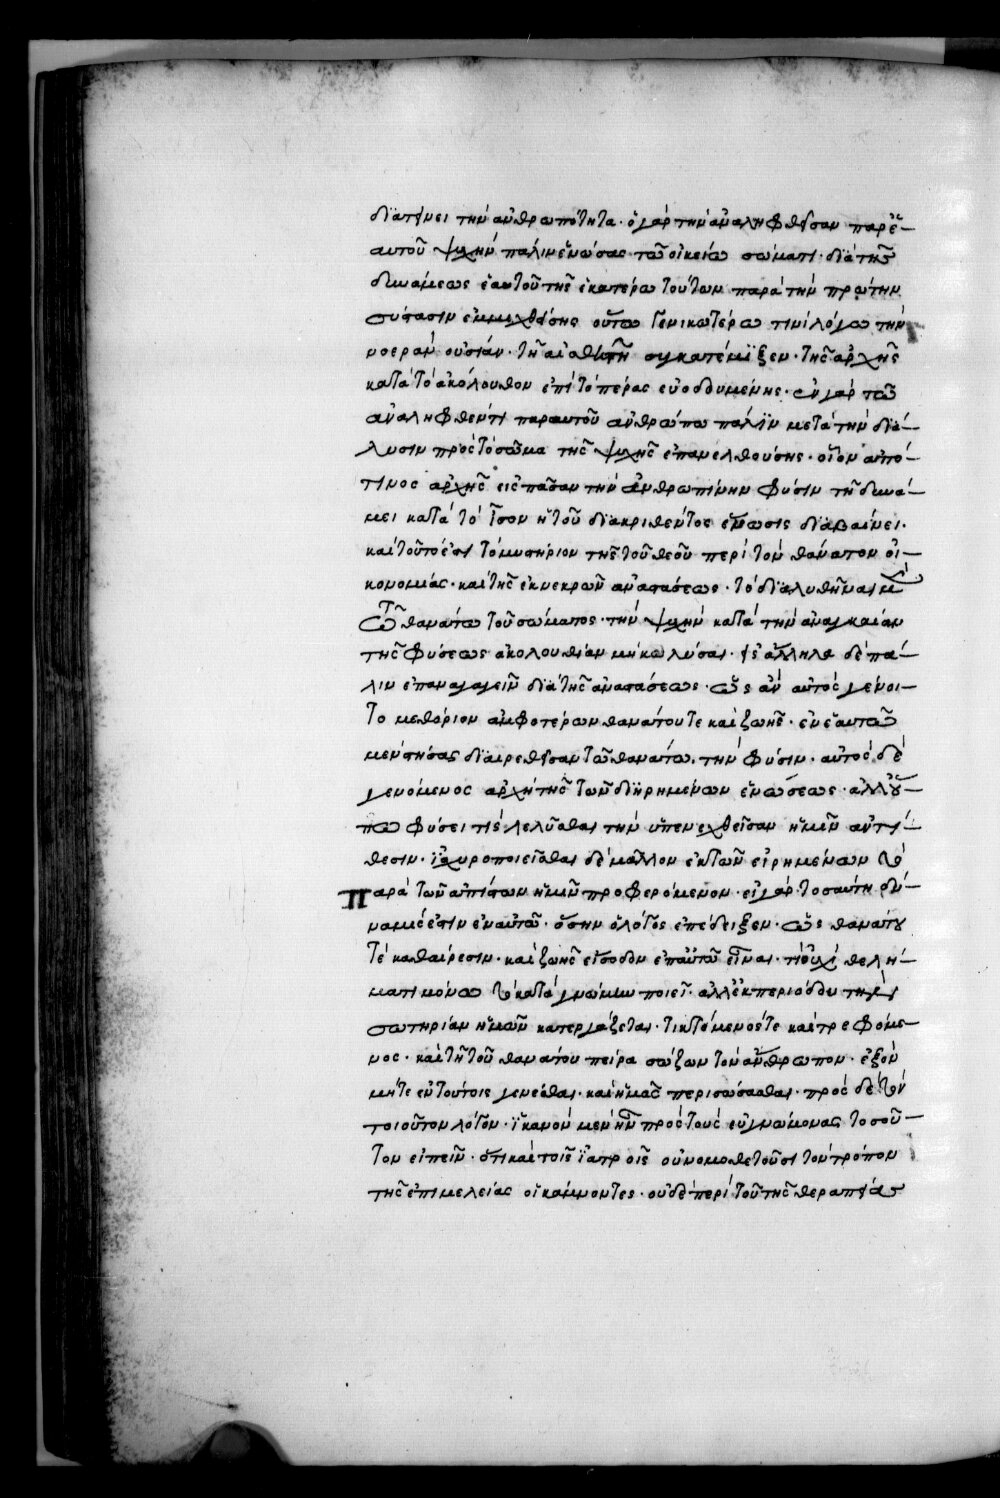 διατείνει τὴν ἀνθρωπότητα· ὁ γὰρ τὴν ἀναληφθεῖσαν παρ' ἑ-
αυτοῦ ψυχὴν πάλιν ἑνώσας τῶ οἰκείω σώματι· διὰ τῆς
δυνάμεως ἑαυτοῦ τῆς ἑκατέρω τούτων παρὰ τὴν πρώτην
σύστασιν ἐμμιχθείσης οὕτω γενικωτέρω τινὶ λόγω τὴν
νοερὰν οὐσίαν· τῆ αἰσθητῆ συγκατέμιξεν· τῆς ἀρχῆς
κατὰ τὸ ἀκόλουθον ἐπὶ τὸ πέρας εὐοδουμένης· ἐν γὰρ τῶ
ἀναληφθέντι παρ αυτοῦ ἀνθρώπω πάλιν μετὰ τὴν διά-
λυσιν πρὸς τὸ σῶμα τῆς ψυχῆς ἐπανελθούσης· οἷον ἀπό
τινος ἀρχῆς εἰς πᾶσαν τὴν ἀνθρωπίνην φύσιν τῆ δυνά-
μει κατὰ τὸ ἴσον ἡ τοῦ διακριθέντος ἕνωσις διαβαίνει·
καὶ τοῦτό ἐστι τὸ μυστήριον τῆς τοῦ θεοῦ περὶ τὸν θάνατον οἰ-
κονομίας· καὶ τῆς ἐκ νεκρῶν ἀναστάσεως· τὸ διαλυθῆναι μὲν
τῶ θανάτω τοῦ σώματος· τὴν ψυχὴν κατὰ τὴν ἀναγκαίαν
τῆς φύσεως ἀκολουθίαν μὴ κωλύσαι· εἰς ἄλληλα δὲ πά-
λιν ἐπαναγαγεῖν διὰ τῆς ἀναστάσεως· ὡς ἂν αὐτὸς γένοι-
το μεθόριον ἀμφοτέρων θανάτου τε καὶ ζωῆς· ἐν ἑαυτῶ
μὲν στήσας διαιρεθεῖσαν τῶ θανάτω τὴν φύσιν· αὐτὸς δὲ
γενόμενος ἀρχὴ τῆς τῶν διηρημένων ἑνώσεως· ἀλλ' οὔ-
πω φύσει τὶς λελῦσθαι τὴν ὑπενεχθεῖσαν ἡμῖν ἀντί-
θεσιν· ἰσχυροποιεῖσθαι δὲ μᾶλλον ἐκ τῶν εἰρημένων τὸ
παρὰ τῶν ἀπίστων ἡμῖν προφερόμενον· εἰ γὰρ τοσαύτη δύ-
ναμίς ἐστιν ἐν αὐτῶ· ὅσην ὁ λόγος ἐπέδειξεν· ὡς θανάτου
τὲ καθαίρεσιν· καὶ ζωῆς εἴσοδον ἐπ αὐτῶ εἶναι· τί οὐχὶ θελή-
ματι μόνω τὸ κατὰ γνώμην ποιεῖ· ἀλλ' ἐκ περιόδου τὴν
σωτηρίαν ἡμῶν κατεργάζεται· τικτόμενός τε καὶ τρεφόμε-
νος· καὶ τῆ τοῦ θανάτου πείρα σώζων τὸν ἄνθρωπον· ἐξὸν
μήτε ἐν τούτοις γενέσθαι· καὶ ἡμᾶς περισώσασθαι· πρὸς δὲ τὸν
τοιοῦτον λόγον· ἱκανὸν μὲν ἦν πρὸς τοὺς εὐγνώμονας τοσοῦ-
τον εἰπεῖν· ὅτι καὶ τοῖς ἰατροῖς οὐ νομοθετοῦσι τὸν τρόπον
τῆς ἐπιμελείας οἱ κάμνοντες· οὐδὲ περὶ τοῦ τῆς θεραπείας